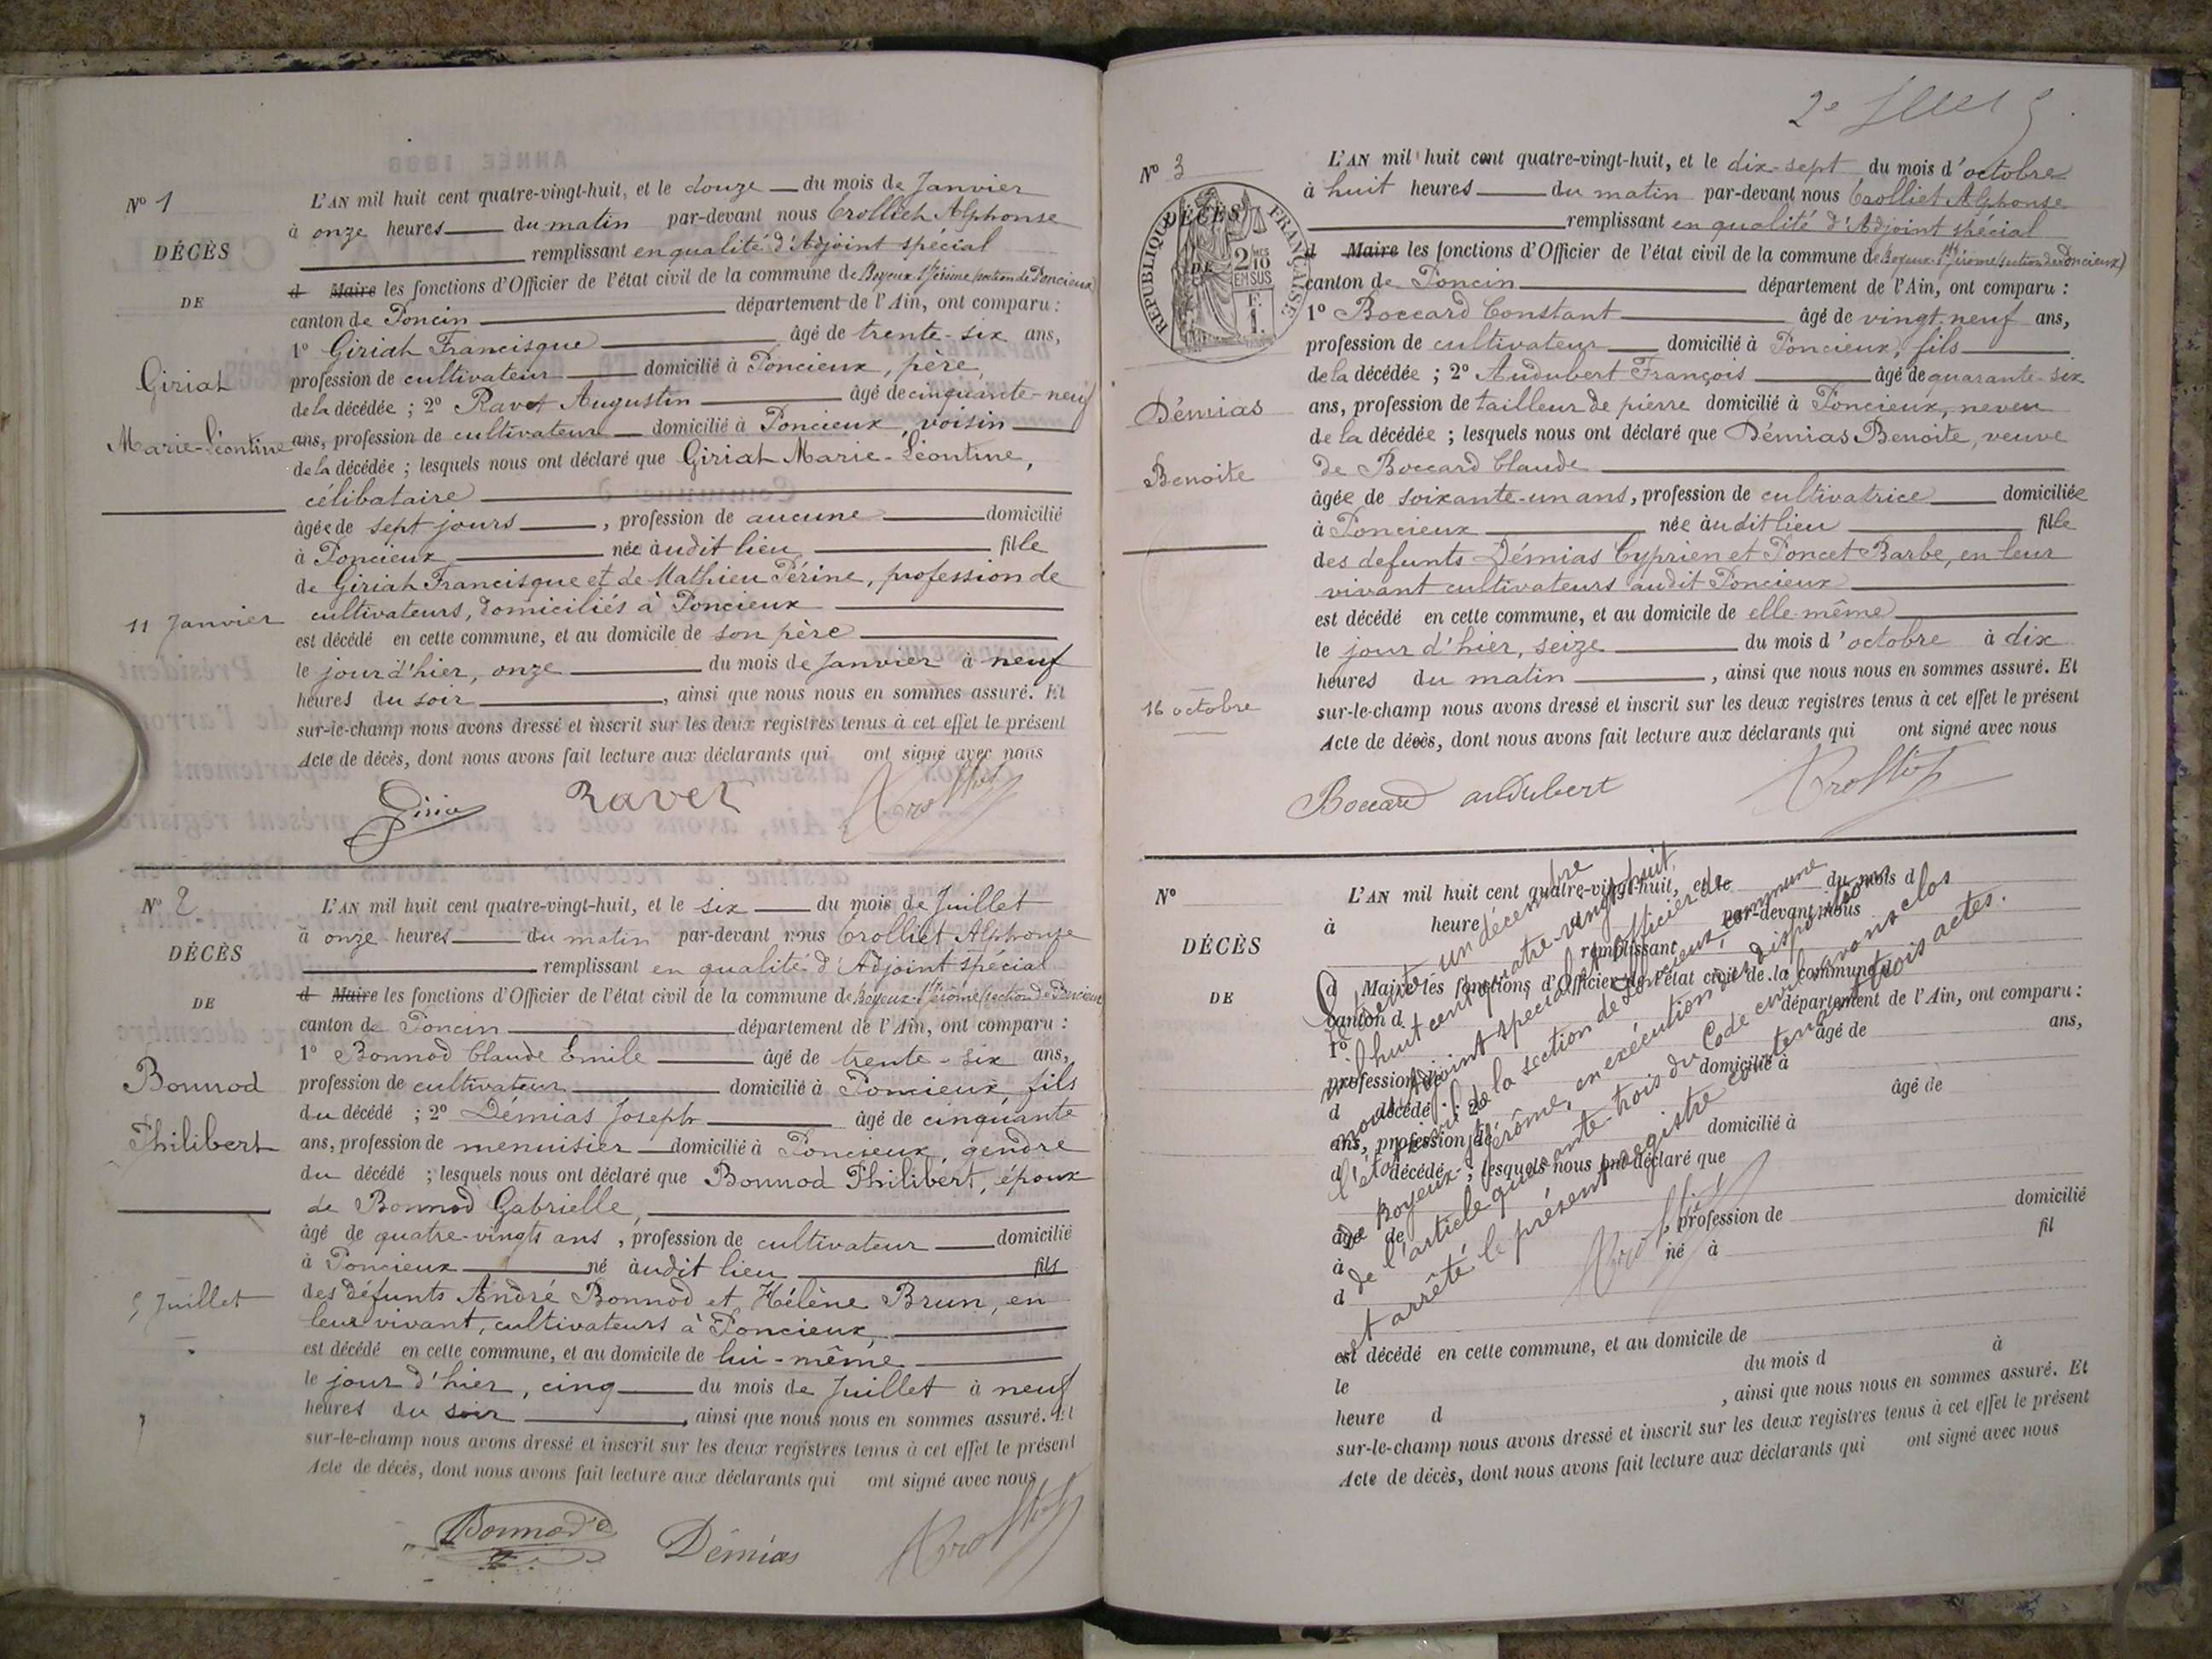 N° 1
DÉCÈS
DE
Giriat
Marie-Léontine
11 Janvier
L'AN mil huit cent quatre-vingt-huit, et le douze du mois de Janvier
à onze heures du matin par-devant nous Crolliet Alphonse
remplissant en qualité d'Adjoint spécial
d Maire les fonctions d'Officier de l'état civil de la commune de Boyeux-St Jérôme (section de Poncieux)
canton de Poncin département de l'Ain, ont comparu :
1° Giriat Francisque âgé de trente-six ans,
profession de cultivateur domicilié à Poncieux, père,
de la décédée ; 2° Ravet Augustin âgé de cinquante-neuf
ans, profession de cultivateur domicilié à Poncieux, voisin
de la décédée ; lesquels nous ont déclaré que Giriat Marie-Léontine,
célibataire
âgée de sept jours, profession de aucune domicilié
à Poncieux née audit lieu fille
de Giriat Francisque et de Mathieu Périne, profession de
cultivateurs, domiciliés à Poncieux
est décédé en cette commune, et au domicile de son père
le jour d'hier, onze du mois de Janvier à neuf
heures du soir, ainsi que nous nous en sommes assuré. Et
sur-le-champ nous avons dressé et inscrit sur les deux registres tenus à cet effet le présent
Acte de décès, dont nous avons fait lecture aux déclarants qui ont signé avec nous
Ravet
N° 2
DÉCÈS
DE
Bonnod
Philibert
5 Juillet
L'AN mil huit cent quatre-vingt-huit, et le six du mois de Juillet
à onze heures du matin par-devant nous Crolliet Alphonse
remplissant en qualité d'Adjoint spécial
d Maire les fonctions d'Officier de l'état civil de la commune de Boyeux-St Jérôme (section de Poncieux)
canton de Poncin département de l'Ain, ont comparu :
1° Bonnod Claude Emile âgé de trente-six ans,
profession de cultivateur domicilié à Poncieux, fils
du décédé ; 2° Démias Joseph âgé de cinquante
ans, profession de menuisier domicilié à Poncieux, gendre
du décédé ; lesquels nous ont déclaré que Bonnod Philibert, époux
de Bonnod Gabrielle,
âgé de quatre-vingts ans, profession de cultivateur domicilié
à Poncieux né audit lieu fils
des défunts André Bonnod et Hélène Brun, en
leur vivant, cultivateurs à Poncieux,
est décédé en cette commune, et au domicile de lui-même
le jour d'hier, cinq du mois de Juillet à neuf
heures du soir, ainsi que nous nous en sommes assuré. Et
sur-le-champ nous avons dressé et inscrit sur les deux registres tenus à cet effet le présent
Acte de décès, dont nous avons fait lecture aux déclarants qui ont signé avec nous
Bonnod Démias
N° 3
DÉCÈS
DE
RÉPUBLIQUE FRANÇAISE
2 MES
10
EN SUS
Démias
Benoite
16 octobre
L'AN mil huit cent quatre-vingt-huit, et le dix-sept du mois d'octobre
à huit heures du matin par-devant nous Crolliet Alphonse
remplissant en qualité d'Adjoint spécial
d Maire les fonctions d'Officier de l'état civil de la commune de Boyeux-St Jérôme (section de Poncieux)
canton de Poncin département de l'Ain, ont comparu :
1° Boccard Constant âgé de vingt-neuf ans,
profession de cultivateur domicilié à Poncieux, fils
de la décédée ; 2° Audubert François âgé de quarante-six
ans, profession de tailleur de pierre domicilié à Poncieux, neveu
de la décédée ; lesquels nous ont déclaré que Démias Benoite, veuve
de Boccard Claude
âgée de soixante-un ans, profession de cultivatrice domiciliée
à Poncieux née audit lieu fille
des defunts Démias Cyprien et Poncet Barbe, en leur
vivant cultivateurs audit Poncieux
est décédé en cette commune, et au domicile de elle-même
le jour d'hier, seize du mois d'octobre à dix
heures du matin, ainsi que nous nous en sommes assuré. Et
sur-le-champ nous avons dressé et inscrit sur les deux registres tenus à cet effet le présent
Acte de décès, dont nous avons fait lecture aux déclarants qui ont signé avec nous
Boccard audubert
N°
DÉCÈS
DE
L'AN mil huit cent quatre-vingt-huit, et le du mois d
à heure par-devant nous
remplissant
d Maire les fonctions d'Officier de l'état civil de la commune d
canton d département de l'Ain, ont comparu :
1° âgé de ans,
profession de domicilié à
d décédé ; 2° âgé de
ans, profession de domicilié à
d décédé ; lesquels nous ont déclaré que
âgé de , profession de domicilié
à né à fil
d
est décédé en cette commune, et au domicile de
le du mois d à
heure d , ainsi que nous nous en sommes assuré. Et
sur-le-champ nous avons dressé et inscrit sur les deux registres tenus à cet effet le présent
Acte de décès, dont nous avons fait lecture aux déclarants qui ont signé avec nous
trente un décembre
mil huit cent quatre-vingt-huit,
nous Adjoint spécial et officier de
l'état civil de la section de Poncieux, commune
de Boyeux-St Jérôme, en exécution des dispositions
de l'article quarante-trois du Code civil, avons clos
et arrêté le présent registre contenant trois actes.